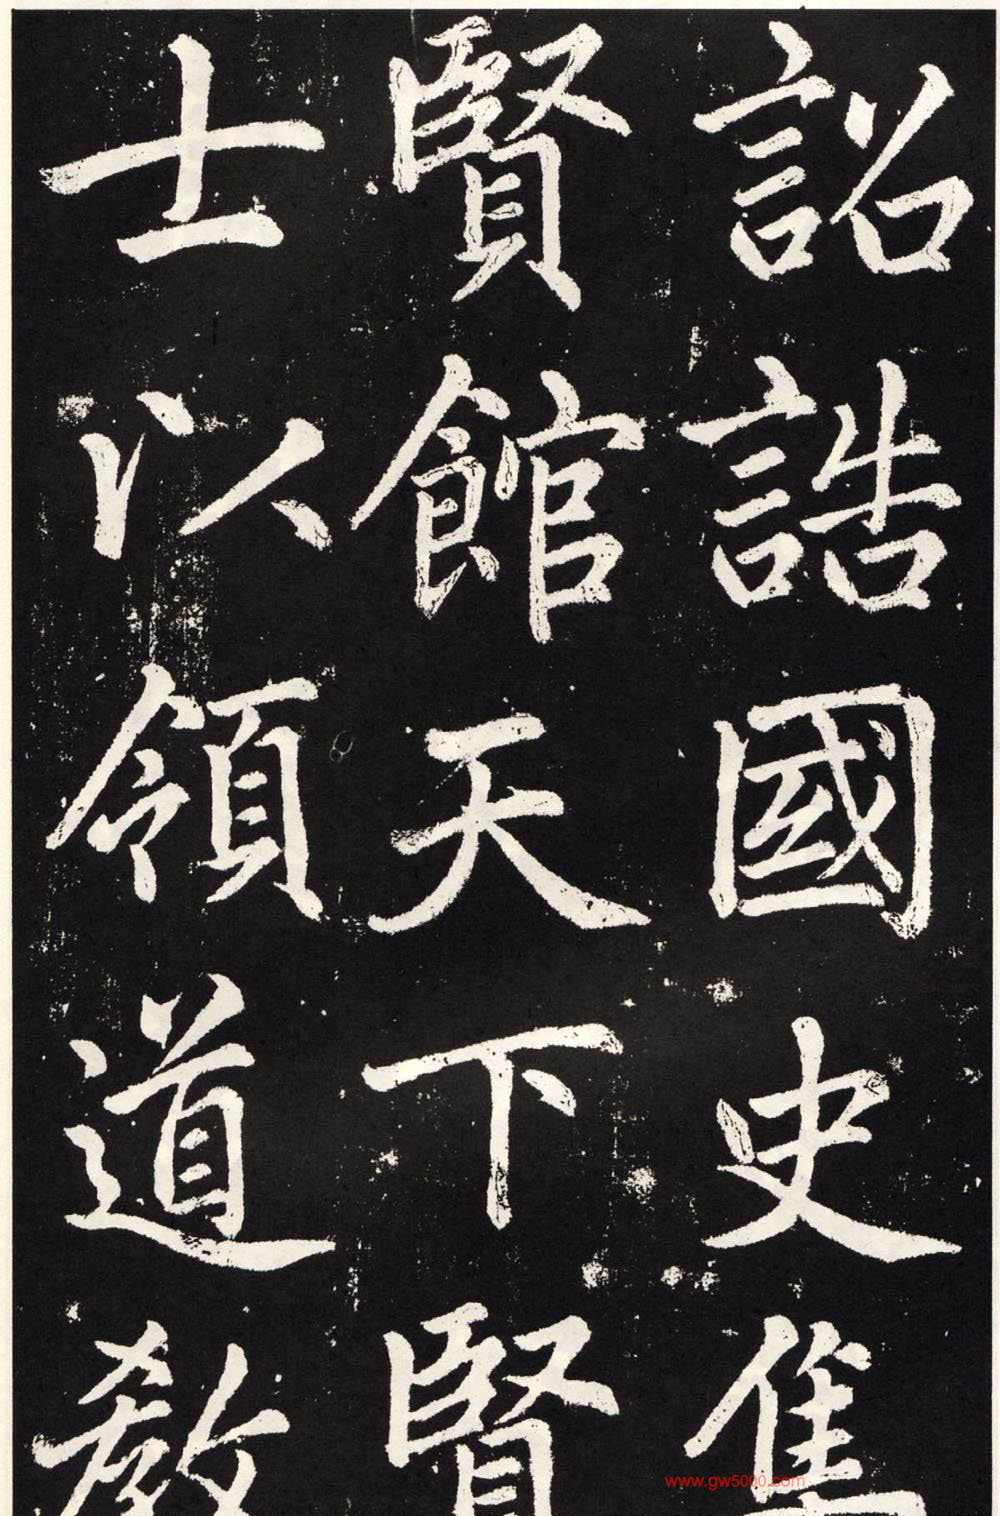 詔誥國史集
賢館天下賢
士以領道教
www.gw5000.com